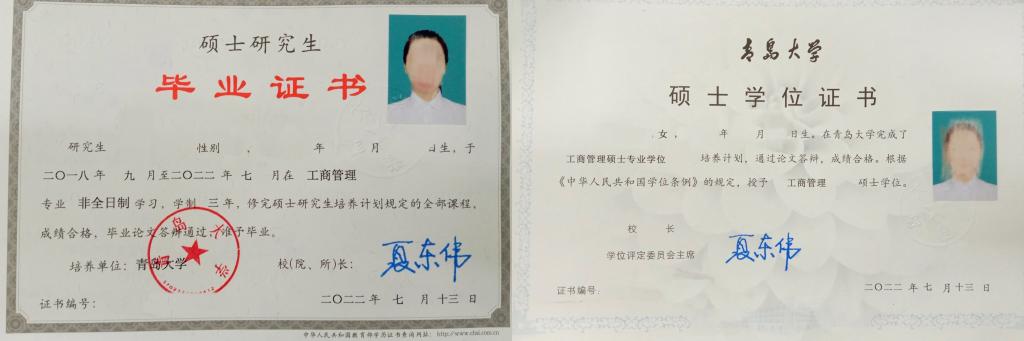 硕士研究生
毕业证书
研究生 性别 , 年 月 日生,于
二〇一八年 九 月至二〇二二年 七 月在 工商管理
专业 非全日制 学习,学制 三 年,修完硕士研究生培养计划规定的全部课程,
成绩合格,毕业论文答辩通过,准予毕业。
培养单位:青岛大学 校(院、所)长: 夏东伟
青岛大学
证书编号: 二〇二二年 七 月十三日
中华人民共和国教育部学历证书查询网址: http://www.chsi.com.cn
青岛大学
硕士学位证书
女, 年 月 日生。在青岛大学完成了
工商管理硕士专业学位 培养计划,通过论文答辩,成绩合格。根据
《中华人民共和国学位条例》的规定,授予 工商管理 硕士学位。
校 长
学位评定委员会主席
夏东伟
证书编号: 二〇二二年 七 月十三日